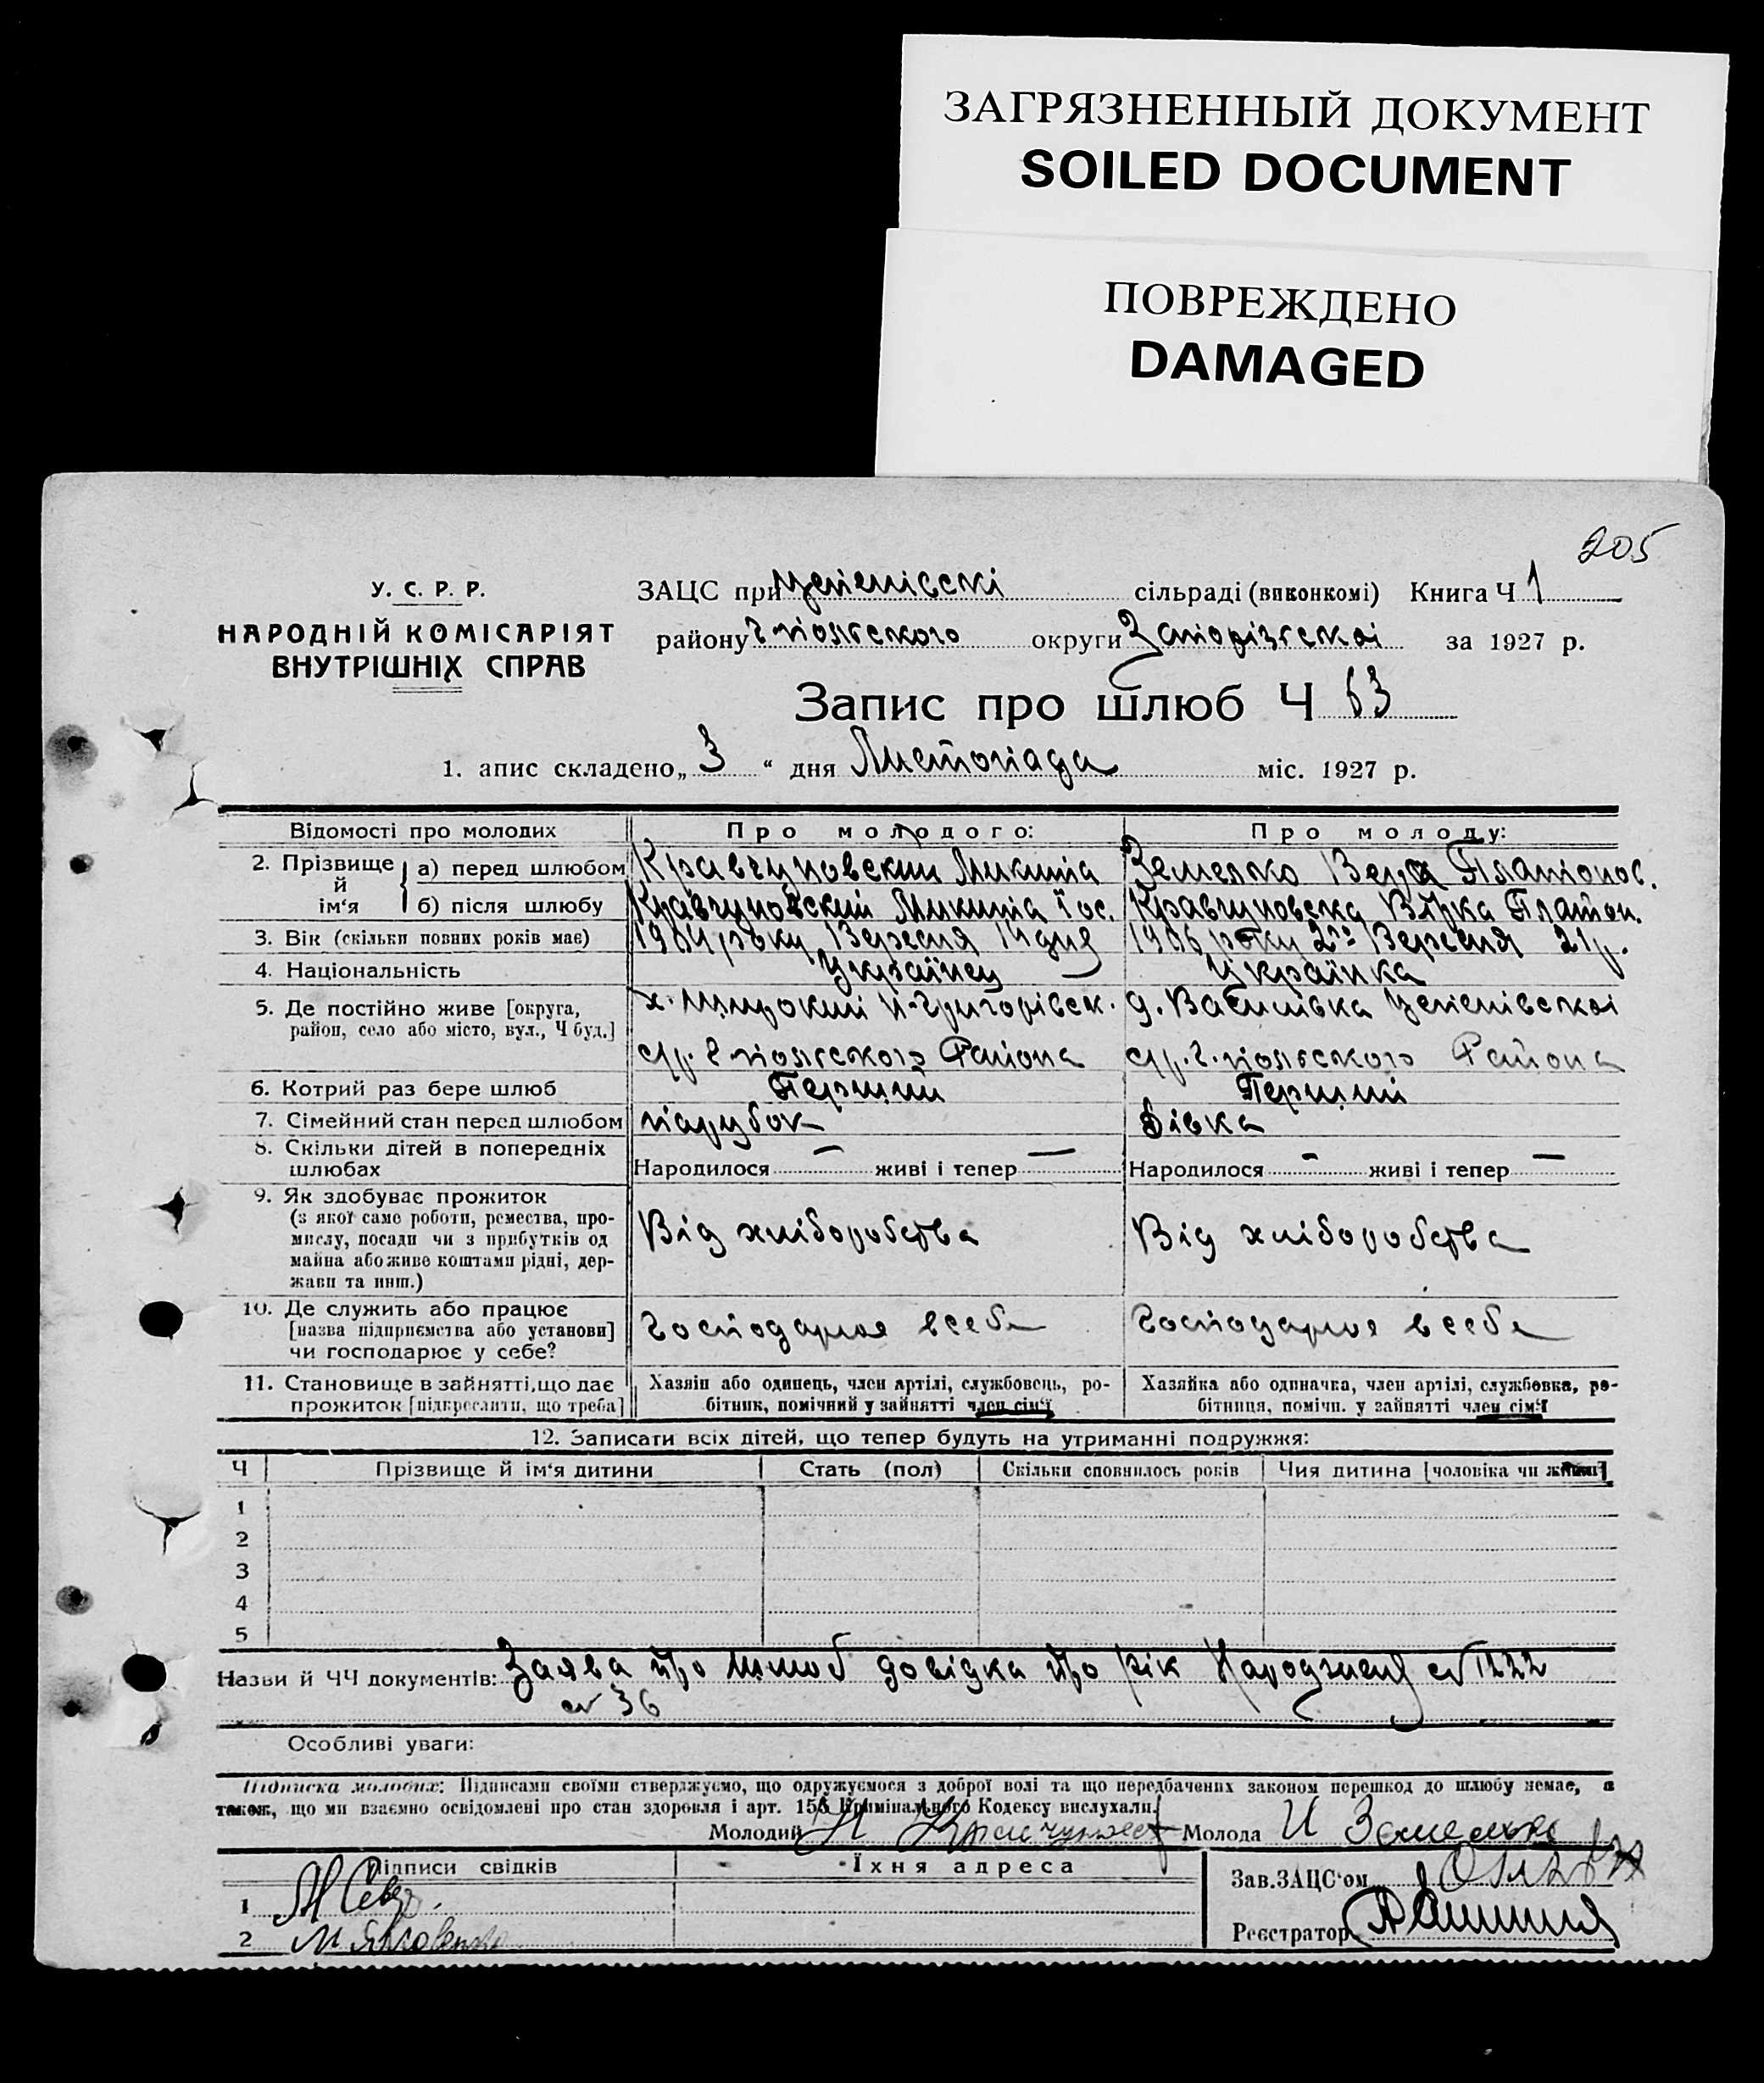 ЗАГРЯЗНЕННЫЙ ДОКУМЕНТ
SOILED DOCUMENT
ПОВРЕЖДЕНО
DAMAGED
205
У. С. Р. Р.
НАРОДНІЙ КОМІСАРІЯТ
ВНУТРІШНІХ СПРАВ
ЗАЦС при сільраді (виконкомі) Книга Ч 1
району округи Запорізської за 1927 р.
Запис про шлюб Ч 63
1. апис складено „ 3 “ дня Листопада міс. 1927 р.
Відомості про молодих Про молодого: Про молоду:
2. Прізвище й ім‘я
а) перед шлюбом Кравчуновский Микита Земелко Вера Платонов.
б) після шлюбу Кравчуновский Микита Іос. Кравчуновска Вірка Платон.
3. Вік (скільки повних років має) 1904 року Вересня 14 дня 1906 року 2го Вересня 21 р.
4. Національність Українец Українка
5. Де постійно живе [округа, х. Широкий Н-Григорівск. д. Василівка
район, село або місто, вул., Ч буд.]
с/р. Района с/р. Района
6. Котрий раз бере шлюб Перший Перший
7. Сімейний стан перед шлюбом парубок Дівка
8. Скільки дітей в попередніх
шлюбах Народилося — живі і тепер — Народилося - живі і тепер —
9. Як здобуває прожиток
(з якої саме роботи, ремества, про-
мислу, посади чи з прибутків од Від хліборобства Від хліборобства
майна або живе коштами рідні, дер-
жави та инш.)
10. Де служить або працює
[назва підприємства або установи] Господарює всебе Господарює всебе
чи господарює у себе?
11. Становище в зайнятті, що дає Хазяін або одинець, член артілі, службовець, ро- Хазяйка або одиначка, член артілі, службовка, ро-
прожиток [підкреслити, що треба] бітник, помічний у зайнятті член сім‘ї бітниця, помічн. у зайнятті член сім‘ї
12. Записати всіх дітей, що тепер будуть на утриманні подружжя:
Ч Прізвище й ім‘я дитини Стать (пол) Скільки сповнилось років Чия дитина [чоловіка чи жінки]
1
2
3
4
5
Назви й ЧЧ документів: Заява про шлюб довідка про рік Народження № 1222
№ 36
Особливі уваги:
Підписка молодих: Підписами своїми стверджуємо, що одружуємося з доброї волі та що передбачених законом перешкод до шлюбу немає, а
також, що ми взаємно освідомлені про стан здоровля і арт. 155 Кримінального Кодексу вислухали.
Молодий Молода
Підписи свідків Їхня адреса Зав. ЗАЦС‘ом
1
2 М Яковенко Реєстратор